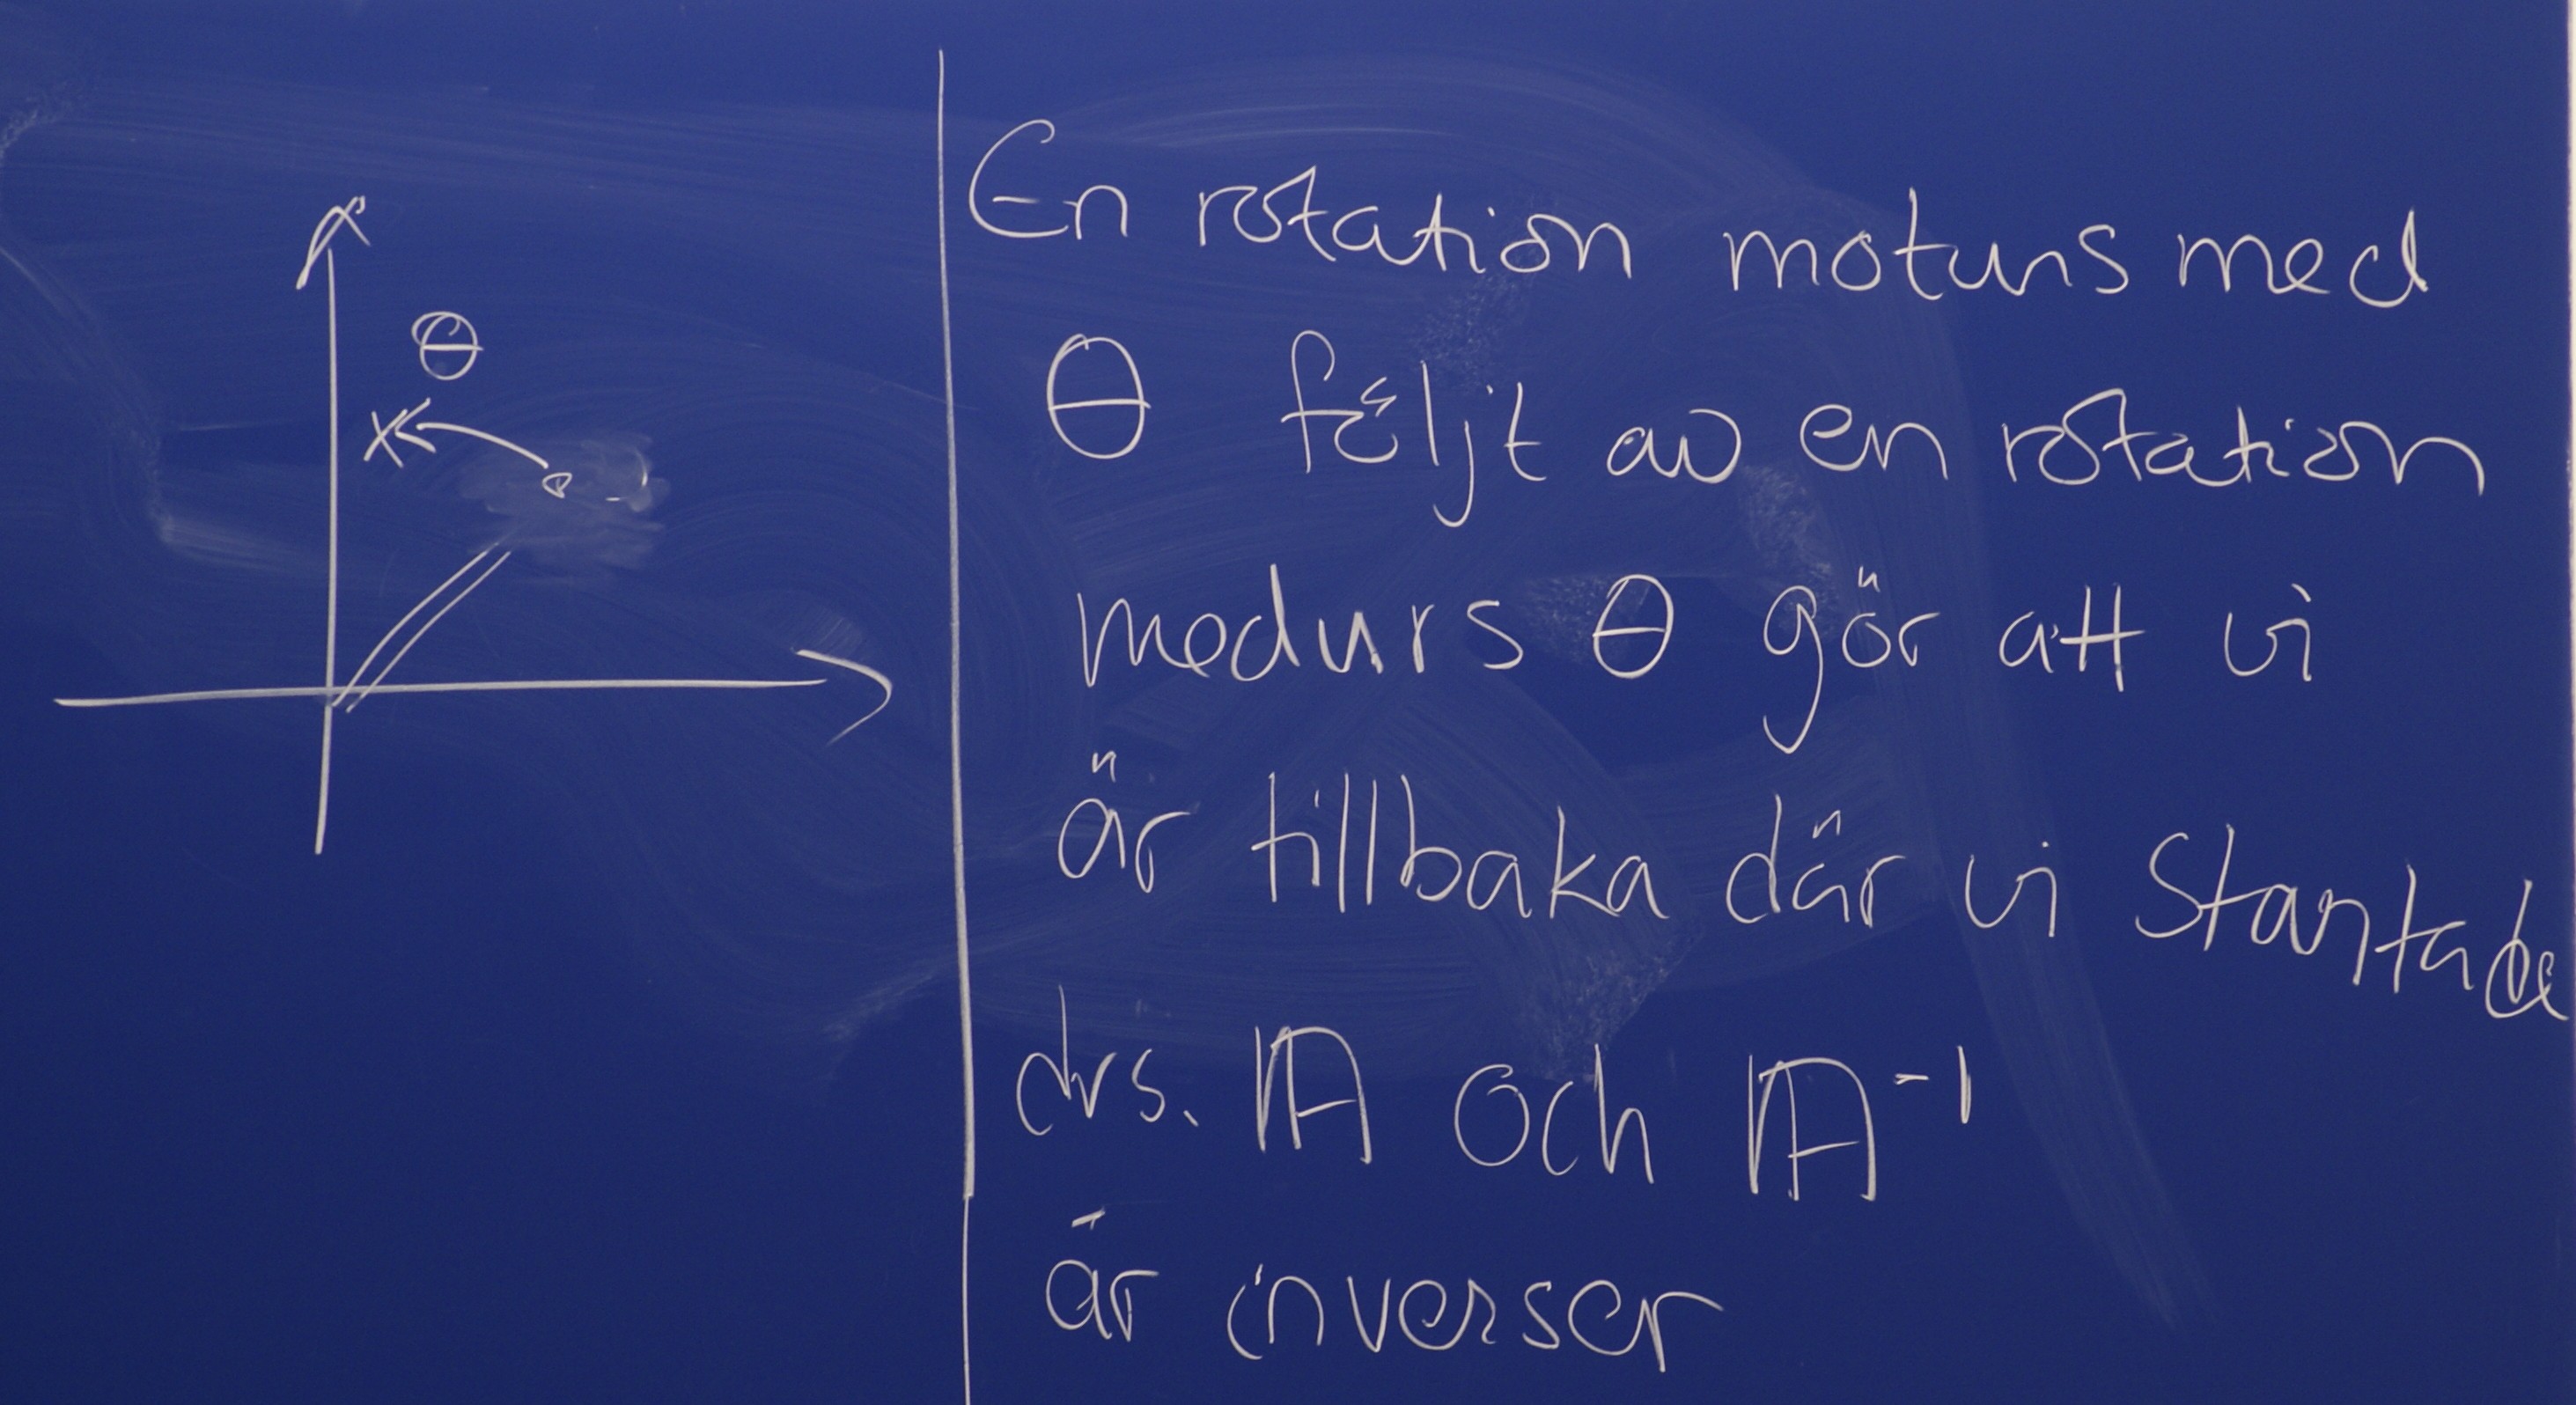 θ
En rotation moturs med
θ följt av en rotation
medurs θ gör att vi
är tillbaka där vi startade
dvs. A och A⁻¹
är inverser